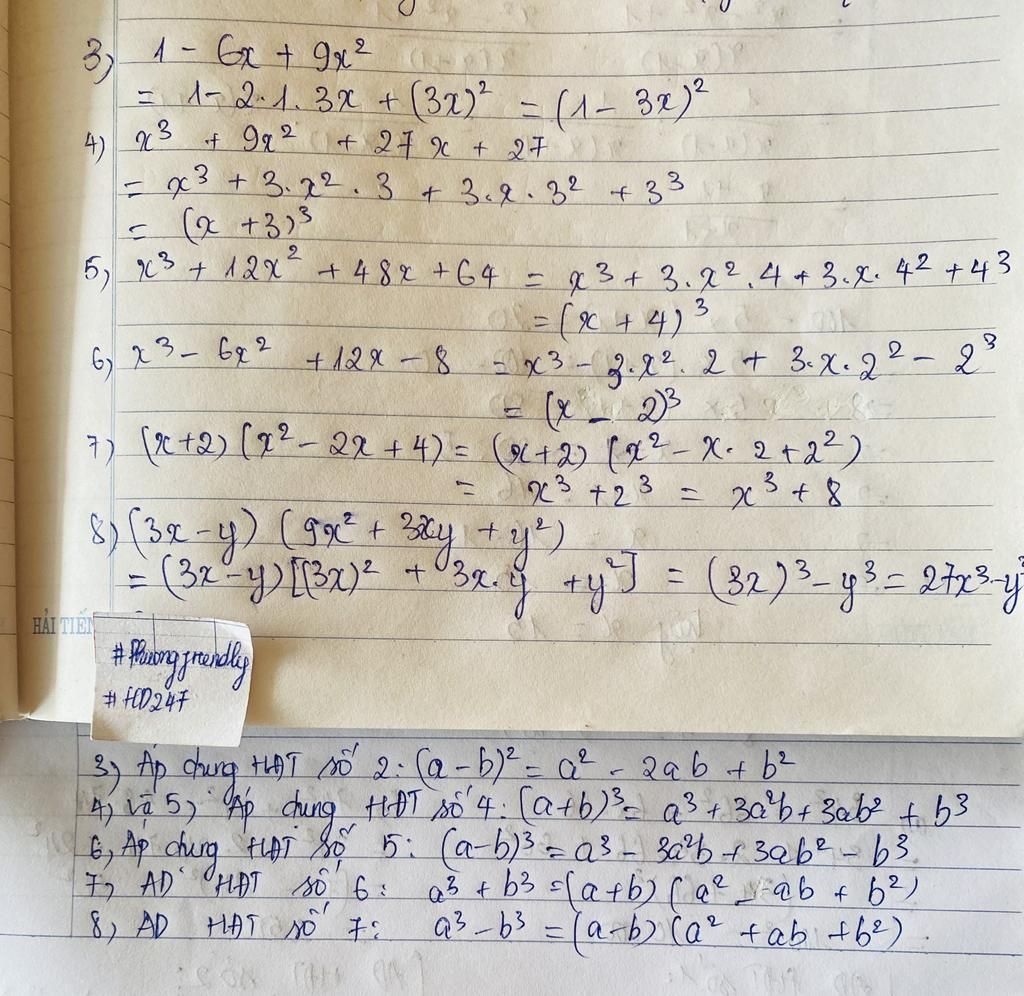 3) 1 - 6x + 9x²
= 1 - 2.1.3x + (3x)² = (1 - 3x)²
4) x³ + 9x² + 27x + 27
= x³ + 3.x².3 + 3.x.3² + 3³
= (x + 3)³
5) x³ + 12x² + 48x + 64 = x³ + 3.x².4 + 3.x.4² + 4³
= (x + 4)³
6) x³ - 6x² + 12x - 8 = x³ - 3.x².2 + 3.x.2² - 2³
= (x - 2)³
7) (x+2)(x² - 2x + 4) = (x+2)(x² - x.2 + 2²)
= x³ + 2³ = x³ + 8
8) (3x - y)(9x² + 3xy + y²)
= (3x - y)[(3x)² + 3x.y + y²] = (3x)³ - y³ = 27x³ - y³
HẢI TIẾN
#Phuongfriendly
#HD247
3) Áp dụng HĐT số 2: (a - b)² = a² - 2ab + b²
4) và 5) Áp dụng HĐT số 4: (a+b)³ = a³ + 3a²b + 3ab² + b³
6) Áp dụng HĐT số 5: (a-b)³ = a³ - 3a²b + 3ab² - b³
7) AD HĐT số 6: a³ + b³ = (a+b)(a² - ab + b²)
8) AD HĐT số 7: a³ - b³ = (a-b)(a² + ab + b²).